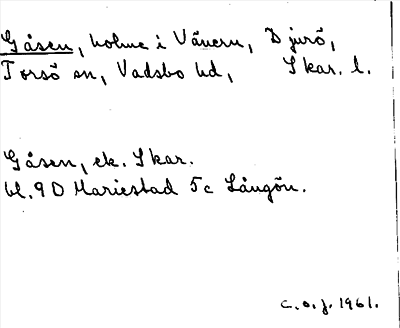 Gåsen, holme i Vänern, Djurö,
Torsö sn, Vadsbo hd, Skar. l.
Gåsen, ek. Skar.
bl. 9D Mariestad 5c Långön.
c.o.j. 1961.